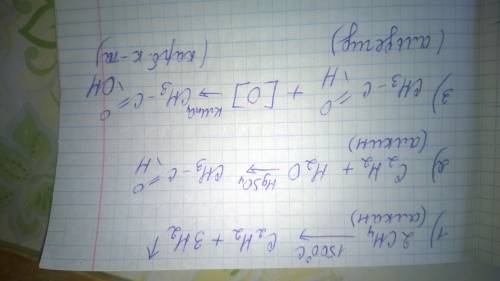 1) 2CH₄ 1500°C → C₂H₂ + 3H₂ ↑
(алкан)
2) C₂H₂ + H₂O HgSO₄ → CH₃ - C = O
\ H
(алкин)
3) CH₃ - C = O + [O] KMnO₄ → CH₃ - C = O
\ H \ OH
(альдегид) (карб. к-та)